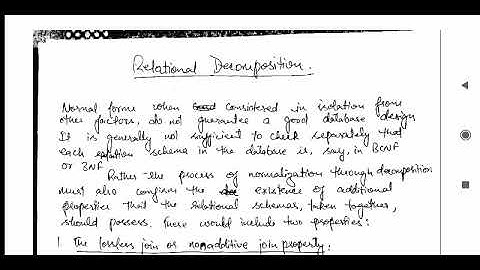 Relational Decomposition.
Normal forms when considered in isolation from
other factors, do not guarantee a good database design
It is generally not sufficient to check separately that
each relation schema in the database is, say, in BCNF
or BNF
Rather the process of normalization through decomposition
must also confirm the existence of additional
properties that the relational schemas, taken together,
should possess. These would include two properties:
1. The lossless join or nonadditive join property: